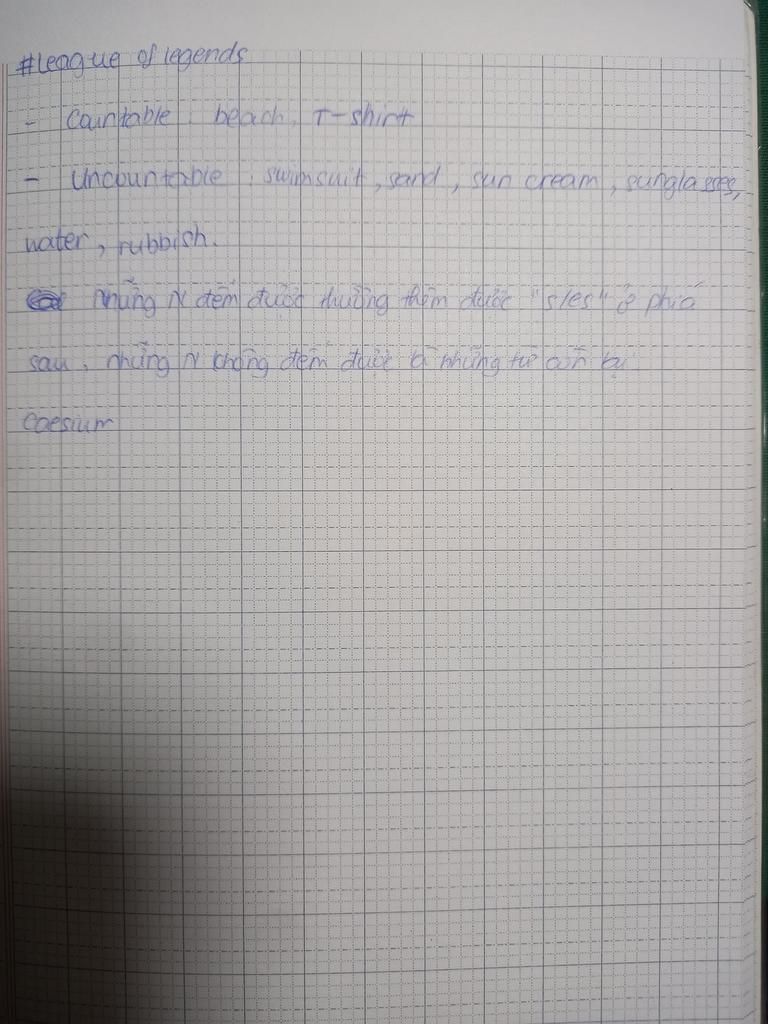 #League of legends
- Countable : beach, T-shirt
- Uncountable : swimsuit, sand, sun cream, sunglasses,
water, rubbish.
những N đếm được thường thêm được "s/es" ở phía
sau, những N không đếm được là những từ còn lại
Caesium